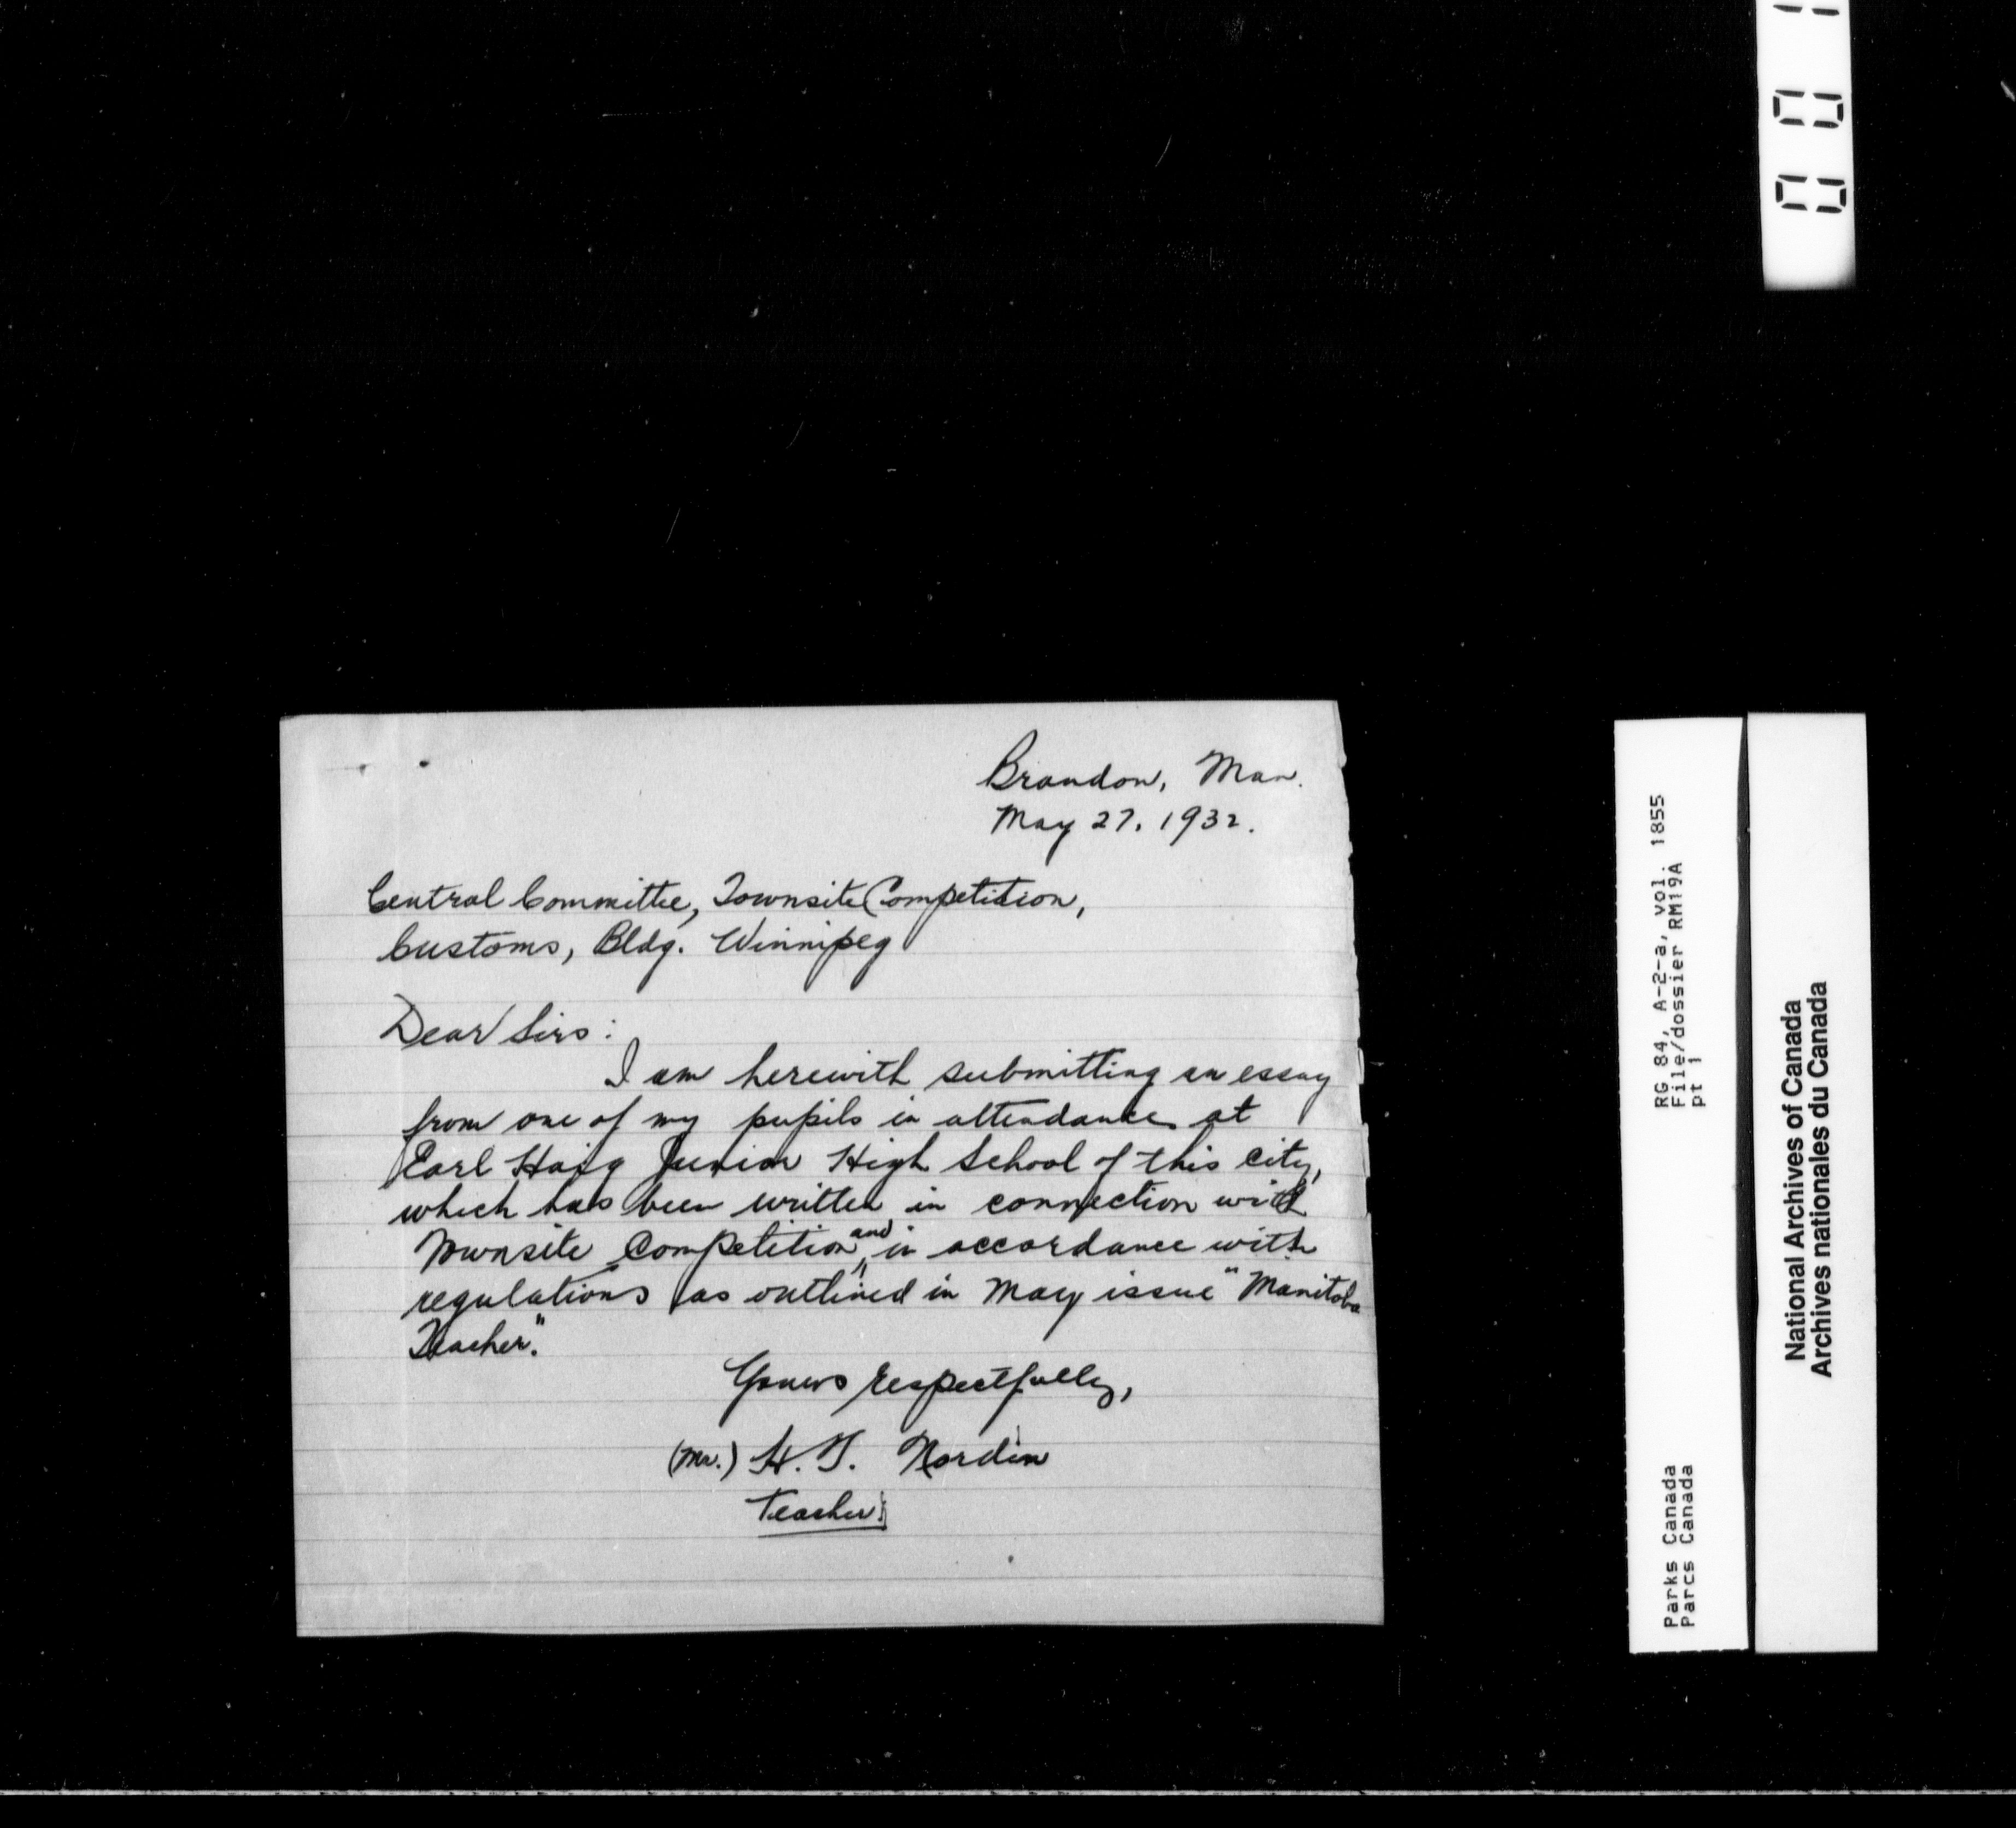 Brandon, Man.
May 27, 1932.
Central Committee, Townsite Competition,
Customs, Bldg. Winnipeg
Dear Sirs:
I am herewith submitting an essay
from one of my pupils in attendance at
Earl Haig Junior High School of this city,
which has been written in connection with
Townsite Competition and in accordance with
regulations as outlined in May issue "Manitoba
Teacher."
Yours respectfully,
(Mr.) H. T. Nordin
Teacher.
RG 84, A-2-a, vol. 1855
File/dossier RM19A
pt 1
Parks Canada
Parcs Canada
National Archives of Canada
Archives nationales du Canada